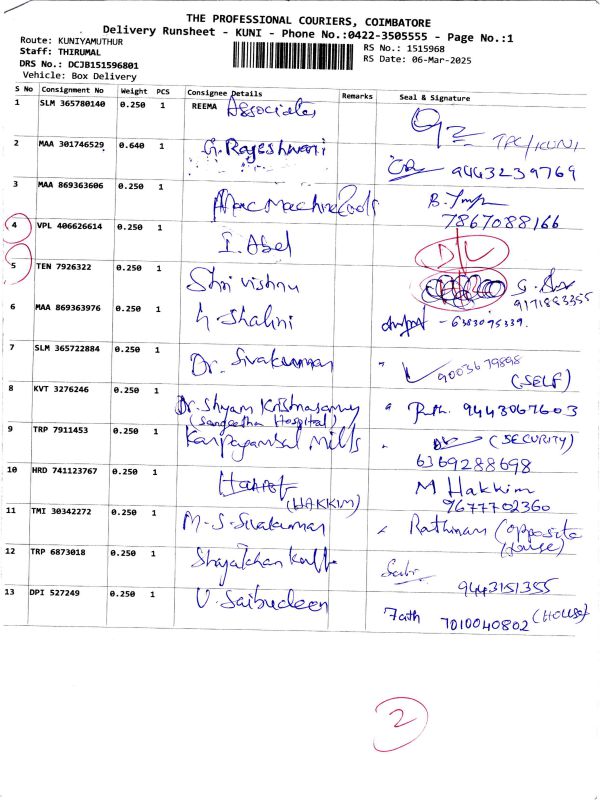 THE PROFESSIONAL COURIERS, COIMBATORE
Delivery Runsheet - KUNI - Phone No.:0422-3505555 - Page No.:1
Route: KUNIYAMUTHUR
RS No.: 1515968
Staff: THIRUMAL
RS Date: 06-Mar-2025
DRS No.: DCJB151596801
Vehicle: Box Delivery
S No Consignment No Weight PCS Consignee Details Remarks Seal & Signature
1 SLM 365780140 0.250 1 REEMA Associates
TPC/KUNI
2 MAA 301746529 0.640 1 G. Rajeshwari
9443239769
3 MAA 869363606 0.250 1 Mac Machine Tools B.
7867088166
4 VPL 406626614 0.250 1 I. Abel D/L
5 TEN 7926322 0.250 1 Shri Vishnu
9171883355
6 MAA 869363976 0.250 1 Shalini - 6383095339.
7 SLM 365722884 0.250 1 Dr. Sivakumar " 9003679898
(SELF)
8 KVT 3276246 0.250 1 Dr. Shyam Krishnasamy " 9443067603
(Sangeetha Hospital)
9 TRP 7911453 0.250 1 Karpagambal Mills (SECURITY)
6369288698
10 HRD 741123767 0.250 1 (HAKKIM) M Hakkim
9677702360
11 TMI 30342272 0.250 1 M. S. Sivakumar Rathinam (opposite
house)
12 TRP 6873018 0.250 1
9443151355
13 DPI 527249 0.250 1 U. Saibudeen Fath 7010040802 (HOUSE)
2